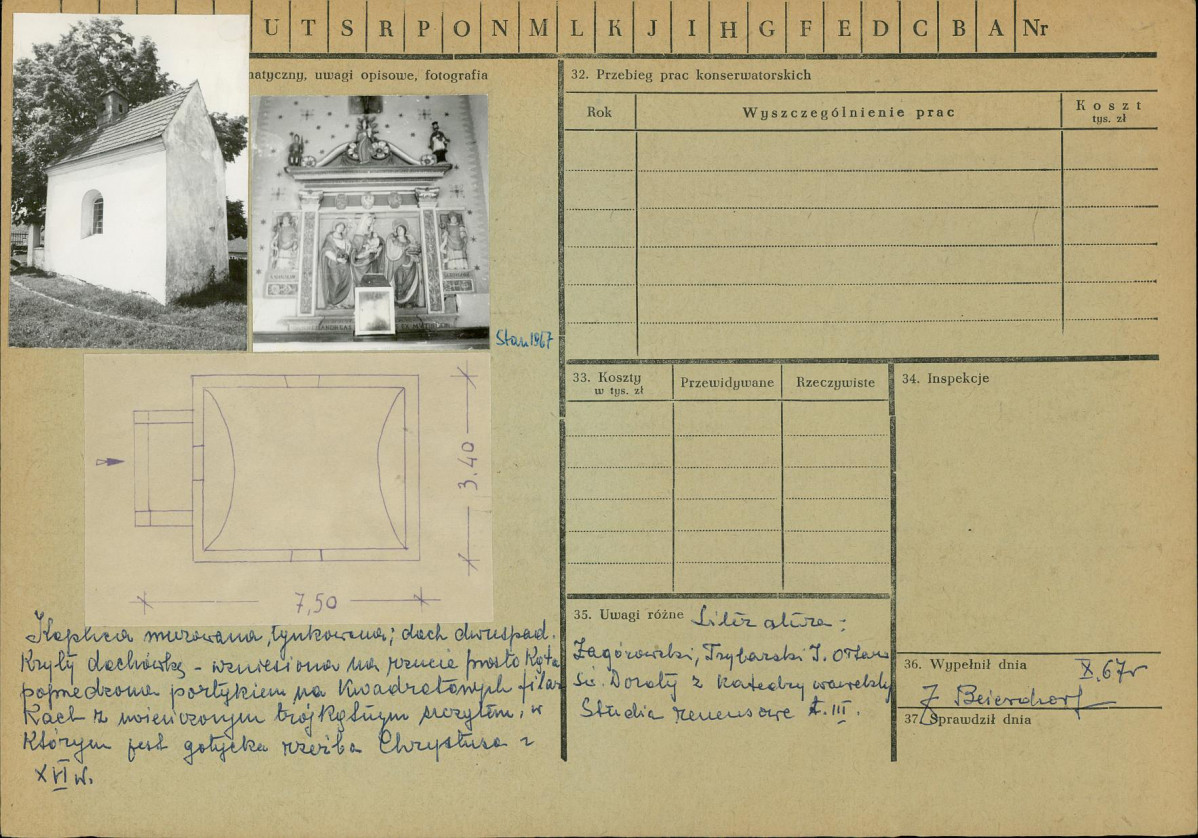 U T S R P O N M L K J I H G F E D C B A Nr
matyczny, uwagi opisowe, fotografia
Stan 1967
3.40
7,50
Kaplica murowana, tynkowana; dach dwuspad.
Kryty dachówką - wzniesiona na rzucie prostokąta
poprzedzona portykiem na kwadratowych filar
kach z zwieńczonym trójkątnym szczytem, w
którym jest gotycka rzeźba Chrystusa z
XVI w.
32. Przebieg prac konserwatorskich
Rok
Wyszczególnienie prac
Koszt
tys. zł
33. Koszty
w tys. zł
Przewidywane
Rzeczywiste
34. Inspekcje
35. Uwagi różne Literatura:
Zagórowski, Trybarski J. Ołtarz
św. Doroty z katedry wawelsky
Studia renensowe t. III.
36. Wypełnił dnia X.67r
J Beierdorf
37. Sprawdził dnia